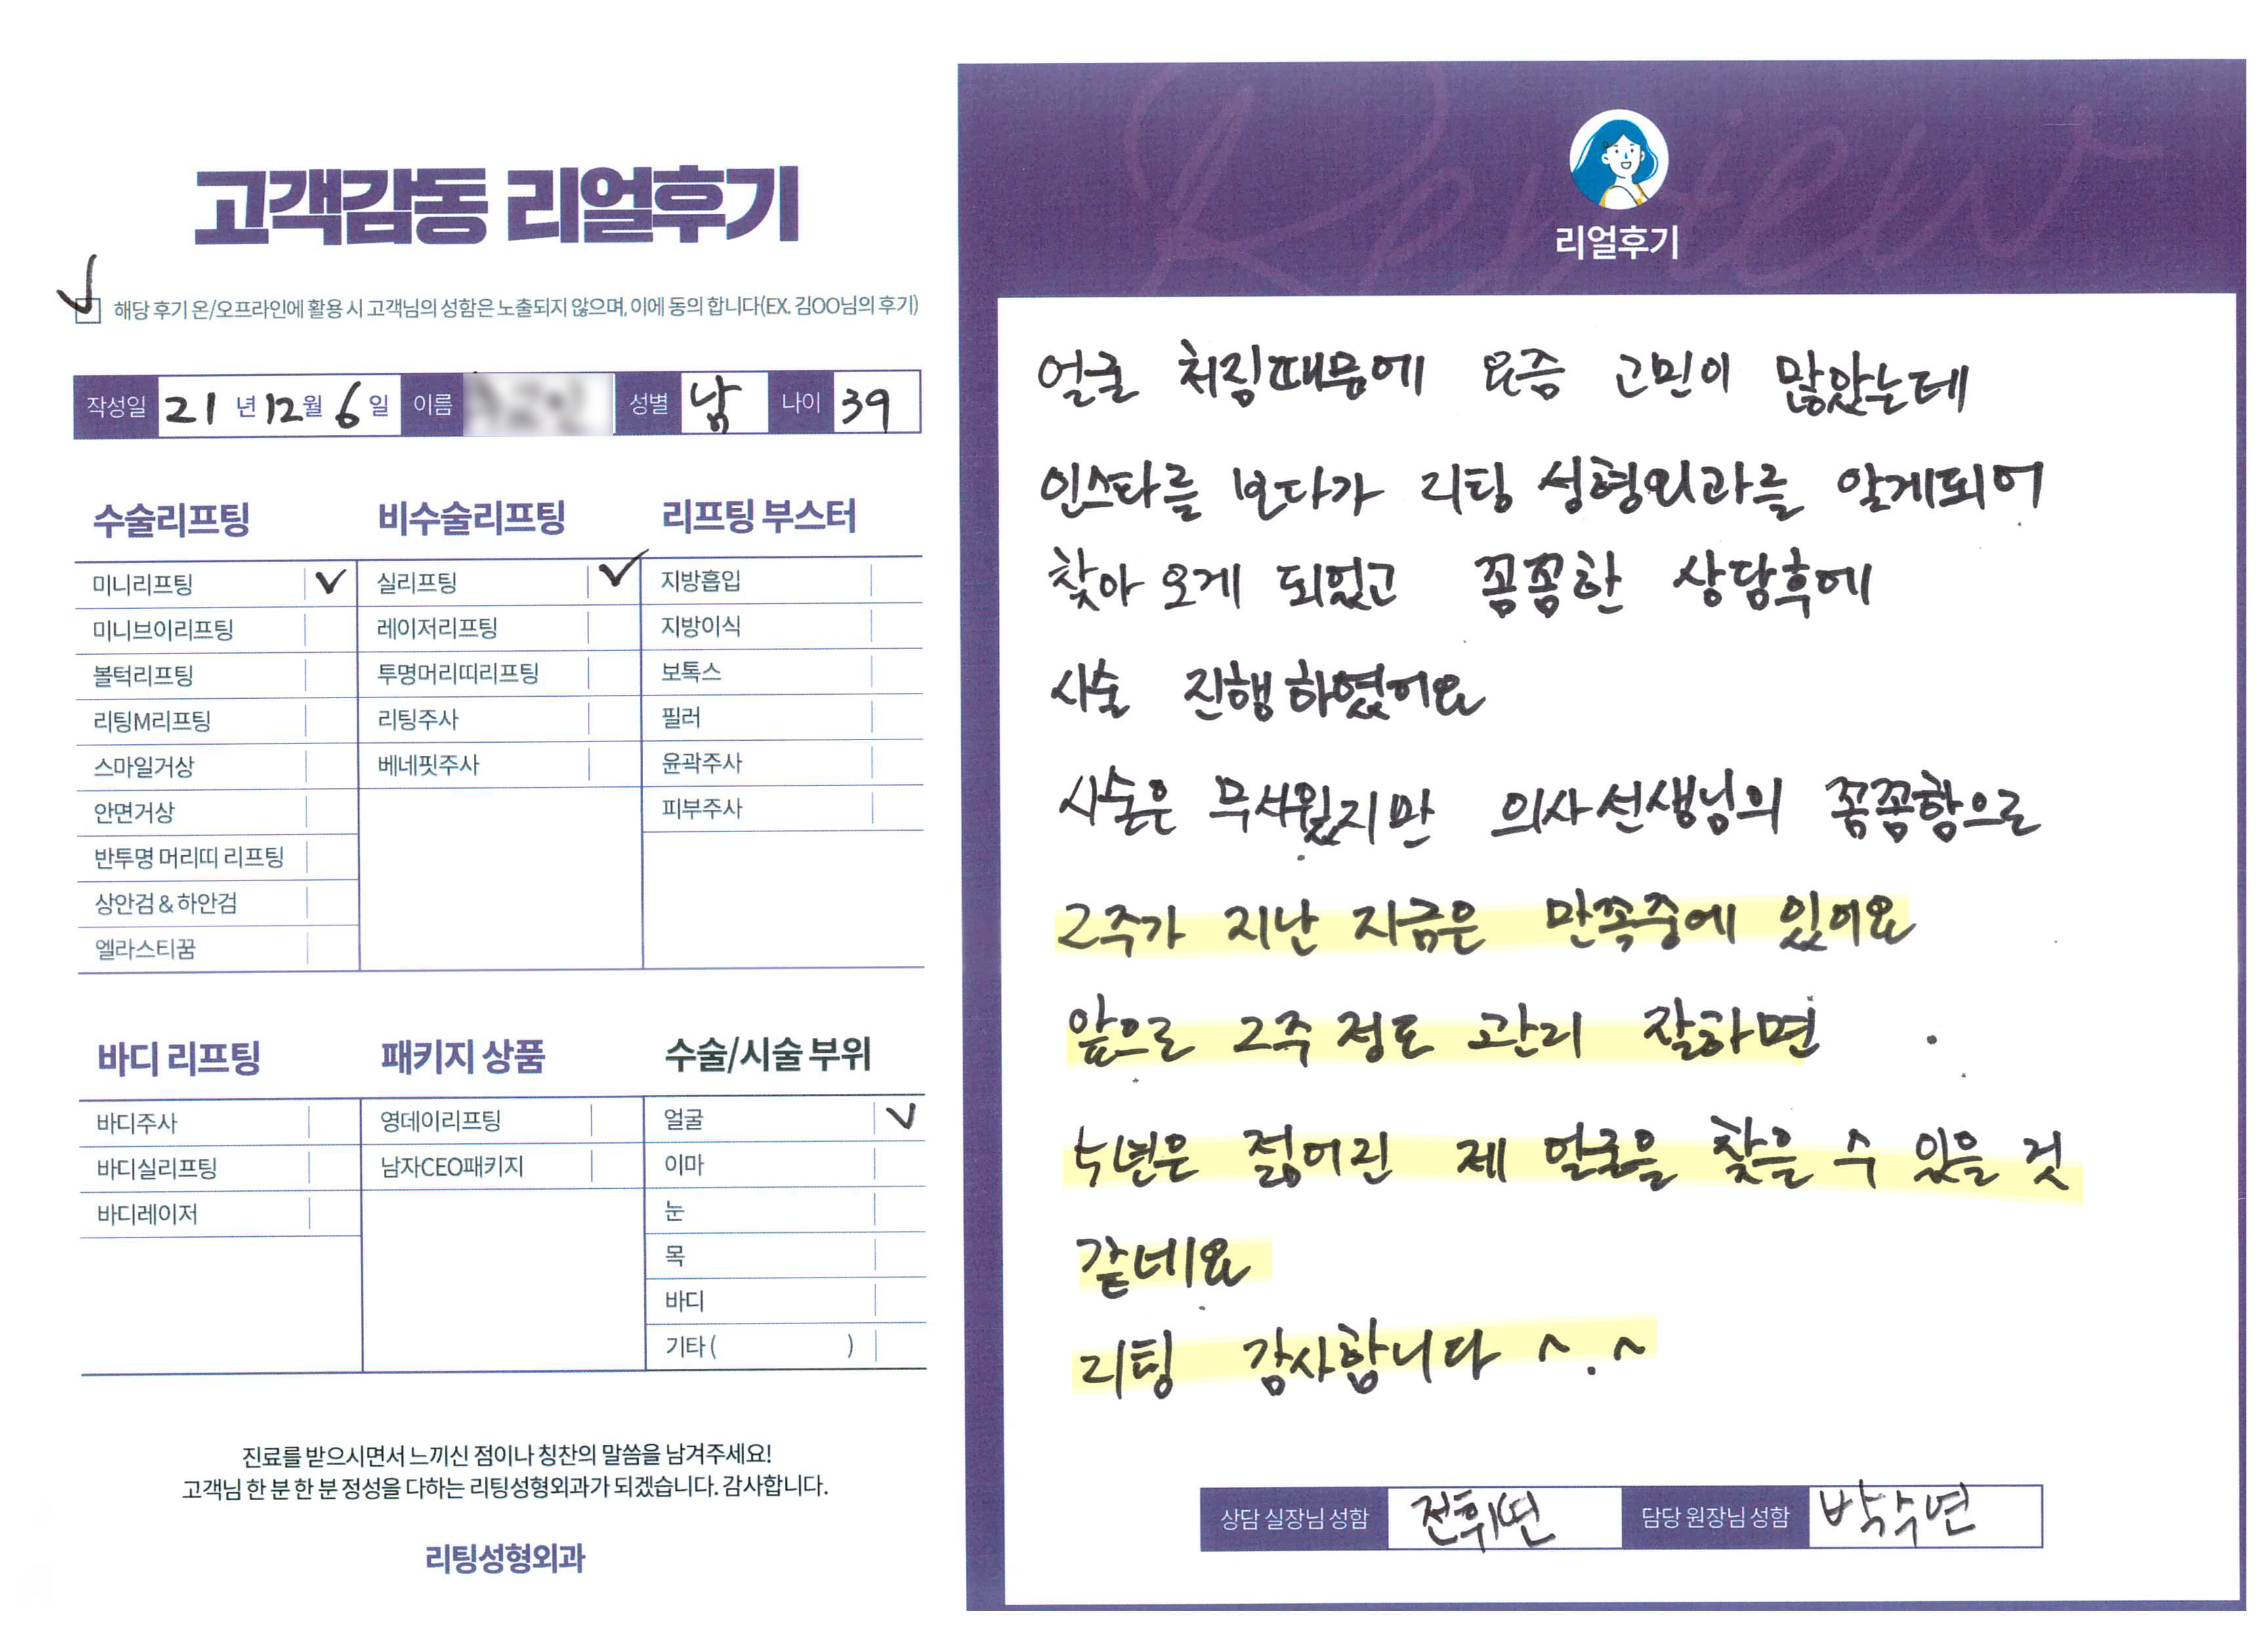 고객감동 리얼후기
해당 후기 온/오프라인에 활용 시 고객님의 성함은 노출되지 않으며, 이에 동의 합니다(EX. 김OO님의 후기)
작성일 21 년 12 월 6 일 이름 성별 남 나이 39
수술리프팅
미니리프팅
미니브이리프팅
볼턱리프팅
리팅M리프팅
스마일거상
안면거상
반투명 머리띠 리프팅
상안검 & 하안검
엘라스티꿈
비수술리프팅
실리프팅
레이저리프팅
투명머리띠리프팅
리팅주사
베네핏주사
리프팅 부스터
지방흡입
지방이식
보톡스
필러
윤곽주사
피부주사
바디 리프팅
바디주사
바디실리프팅
바디레이저
패키지 상품
영데이리프팅
남자CEO패키지
수술/시술 부위
얼굴
이마
눈
목
바디
기타 ( )
진료를 받으시면서 느끼신 점이나 칭찬의 말씀을 남겨주세요!
고객님 한 분 한 분 정성을 다하는 리팅성형외과가 되겠습니다. 감사합니다.
리팅성형외과
Review
리얼후기
얼굴 처짐때문에 요즘 고민이 많았는데
인스타를 보다가 리팅 성형외과를 알게되어
찾아 오게 되었고 꼼꼼한 상담후에
시술 진행하였어요
시술은 무서웠지만 의사선생님의 꼼꼼함으로
2주가 지난 지금은 만족중에 있어요
앞으로 2주 정도 관리 잘하면
5년은 젊어진 제 얼굴을 찾을 수 있을 것
같네요
리팅 감사합니다 ^.^
상담 실장님 성함 전휘연 담당 원장님 성함 박수연